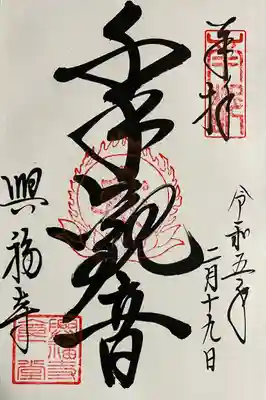 奉拝
令和五年
二月十九日
千手観音
興福寺